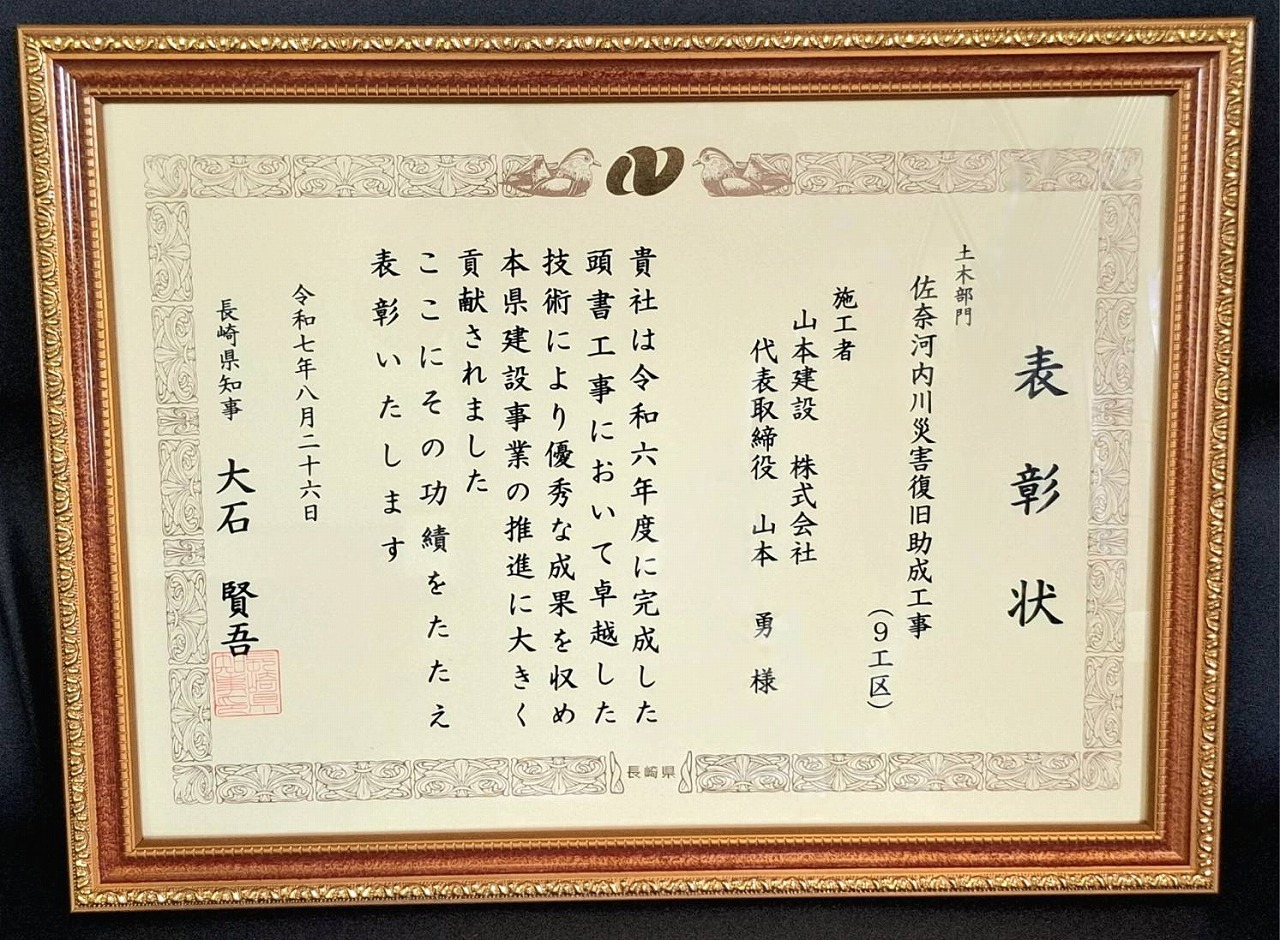 表彰状
土木部門
佐奈河内川災害復旧助成工事
(9工区)
施工者
山本建設 株式会社
代表取締役 山本 勇 様
貴社は令和六年度に完成した
頭書工事において卓越した
技術により優秀な成果を収め
本県建設事業の推進に大きく
貢献されました
ここにその功績をたたえ
表彰いたします
令和七年八月二十六日
長崎県知事 大石 賢吾
長崎県